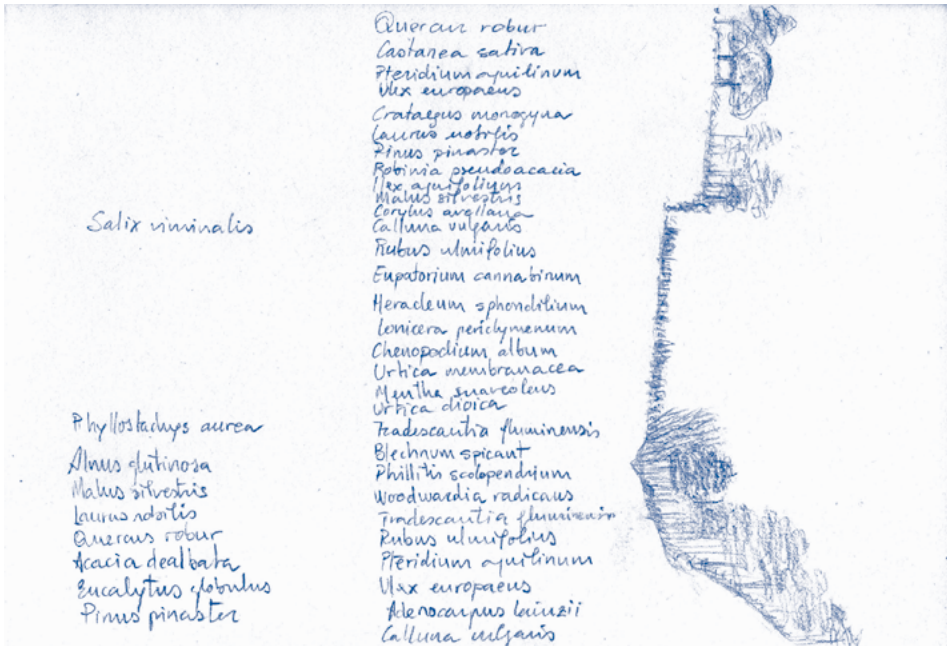 Salix viminalis
Phyllostachys aurea
Alnus glutinosa
Malus silvestris
Laurus nobilis
Quercus robur
Acacia dealbata
Eucalytus globulus
Pinus pinaster
Quercus robur
Castanea sativa
Pteridium aquilinum
Ulex europaeus
Crataegus monogyna
Laurus nobilis
Pinus pinaster
Robinia pseudoacacia
Ilex aquifolium
Malus silvestris
Corylus avellana
Calluna vulgaris
Rubus ulmifolius
Eupatorium cannabinum
Heracleum sphondilium
Lonicera periclymenum
Chenopodium album
Urtica membranacea
Mentha suaveolens
Urtica dioica
Tradescantia fluminensis
Blechnum spicant
Phillitis scolopendrium
Woodwardia radicans
Tradescantia fluminensis
Rubus ulmifolius
Pteridium aquilinum
Ulex europaeus
Adenocarpus lainzii
Calluna vulgaris